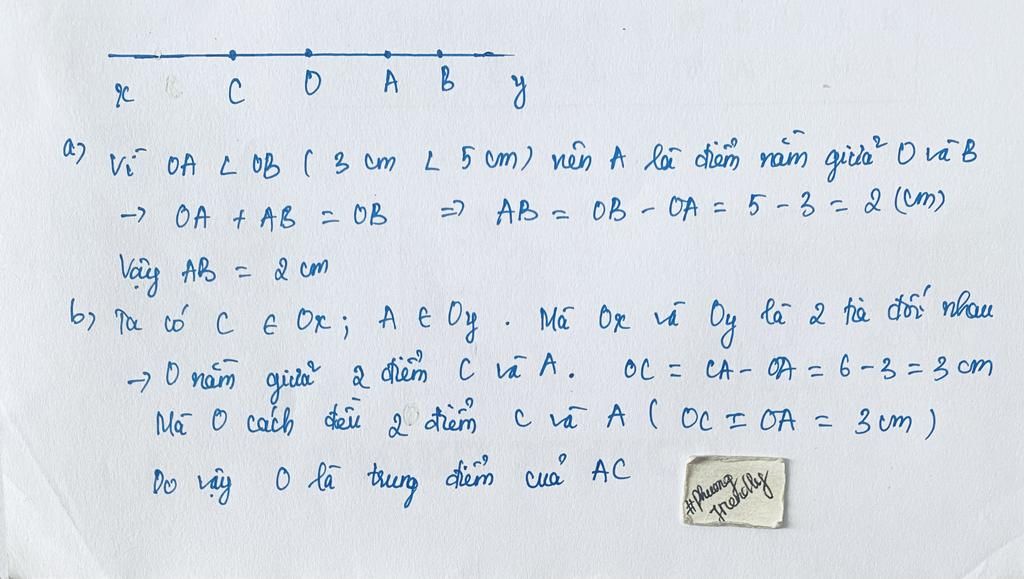 x C O A B y
a) Vì OA < OB ( 3 cm < 5 cm) nên A là điểm nằm giữa O và B
-> OA + AB = OB => AB = OB - OA = 5 - 3 = 2 (cm)
Vậy AB = 2 cm
b) Ta có C ∈ Ox ; A ∈ Oy . Mà Ox và Oy là 2 tia đối nhau
-> O nằm giữa 2 điểm C và A. OC = CA - OA = 6 - 3 = 3 cm
Mà O cách đều 2 điểm C và A ( OC = OA = 3 cm )
Do vậy O là trung điểm của AC
#phuong
friendly